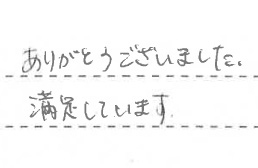 ありがとうございました。
満足しています。